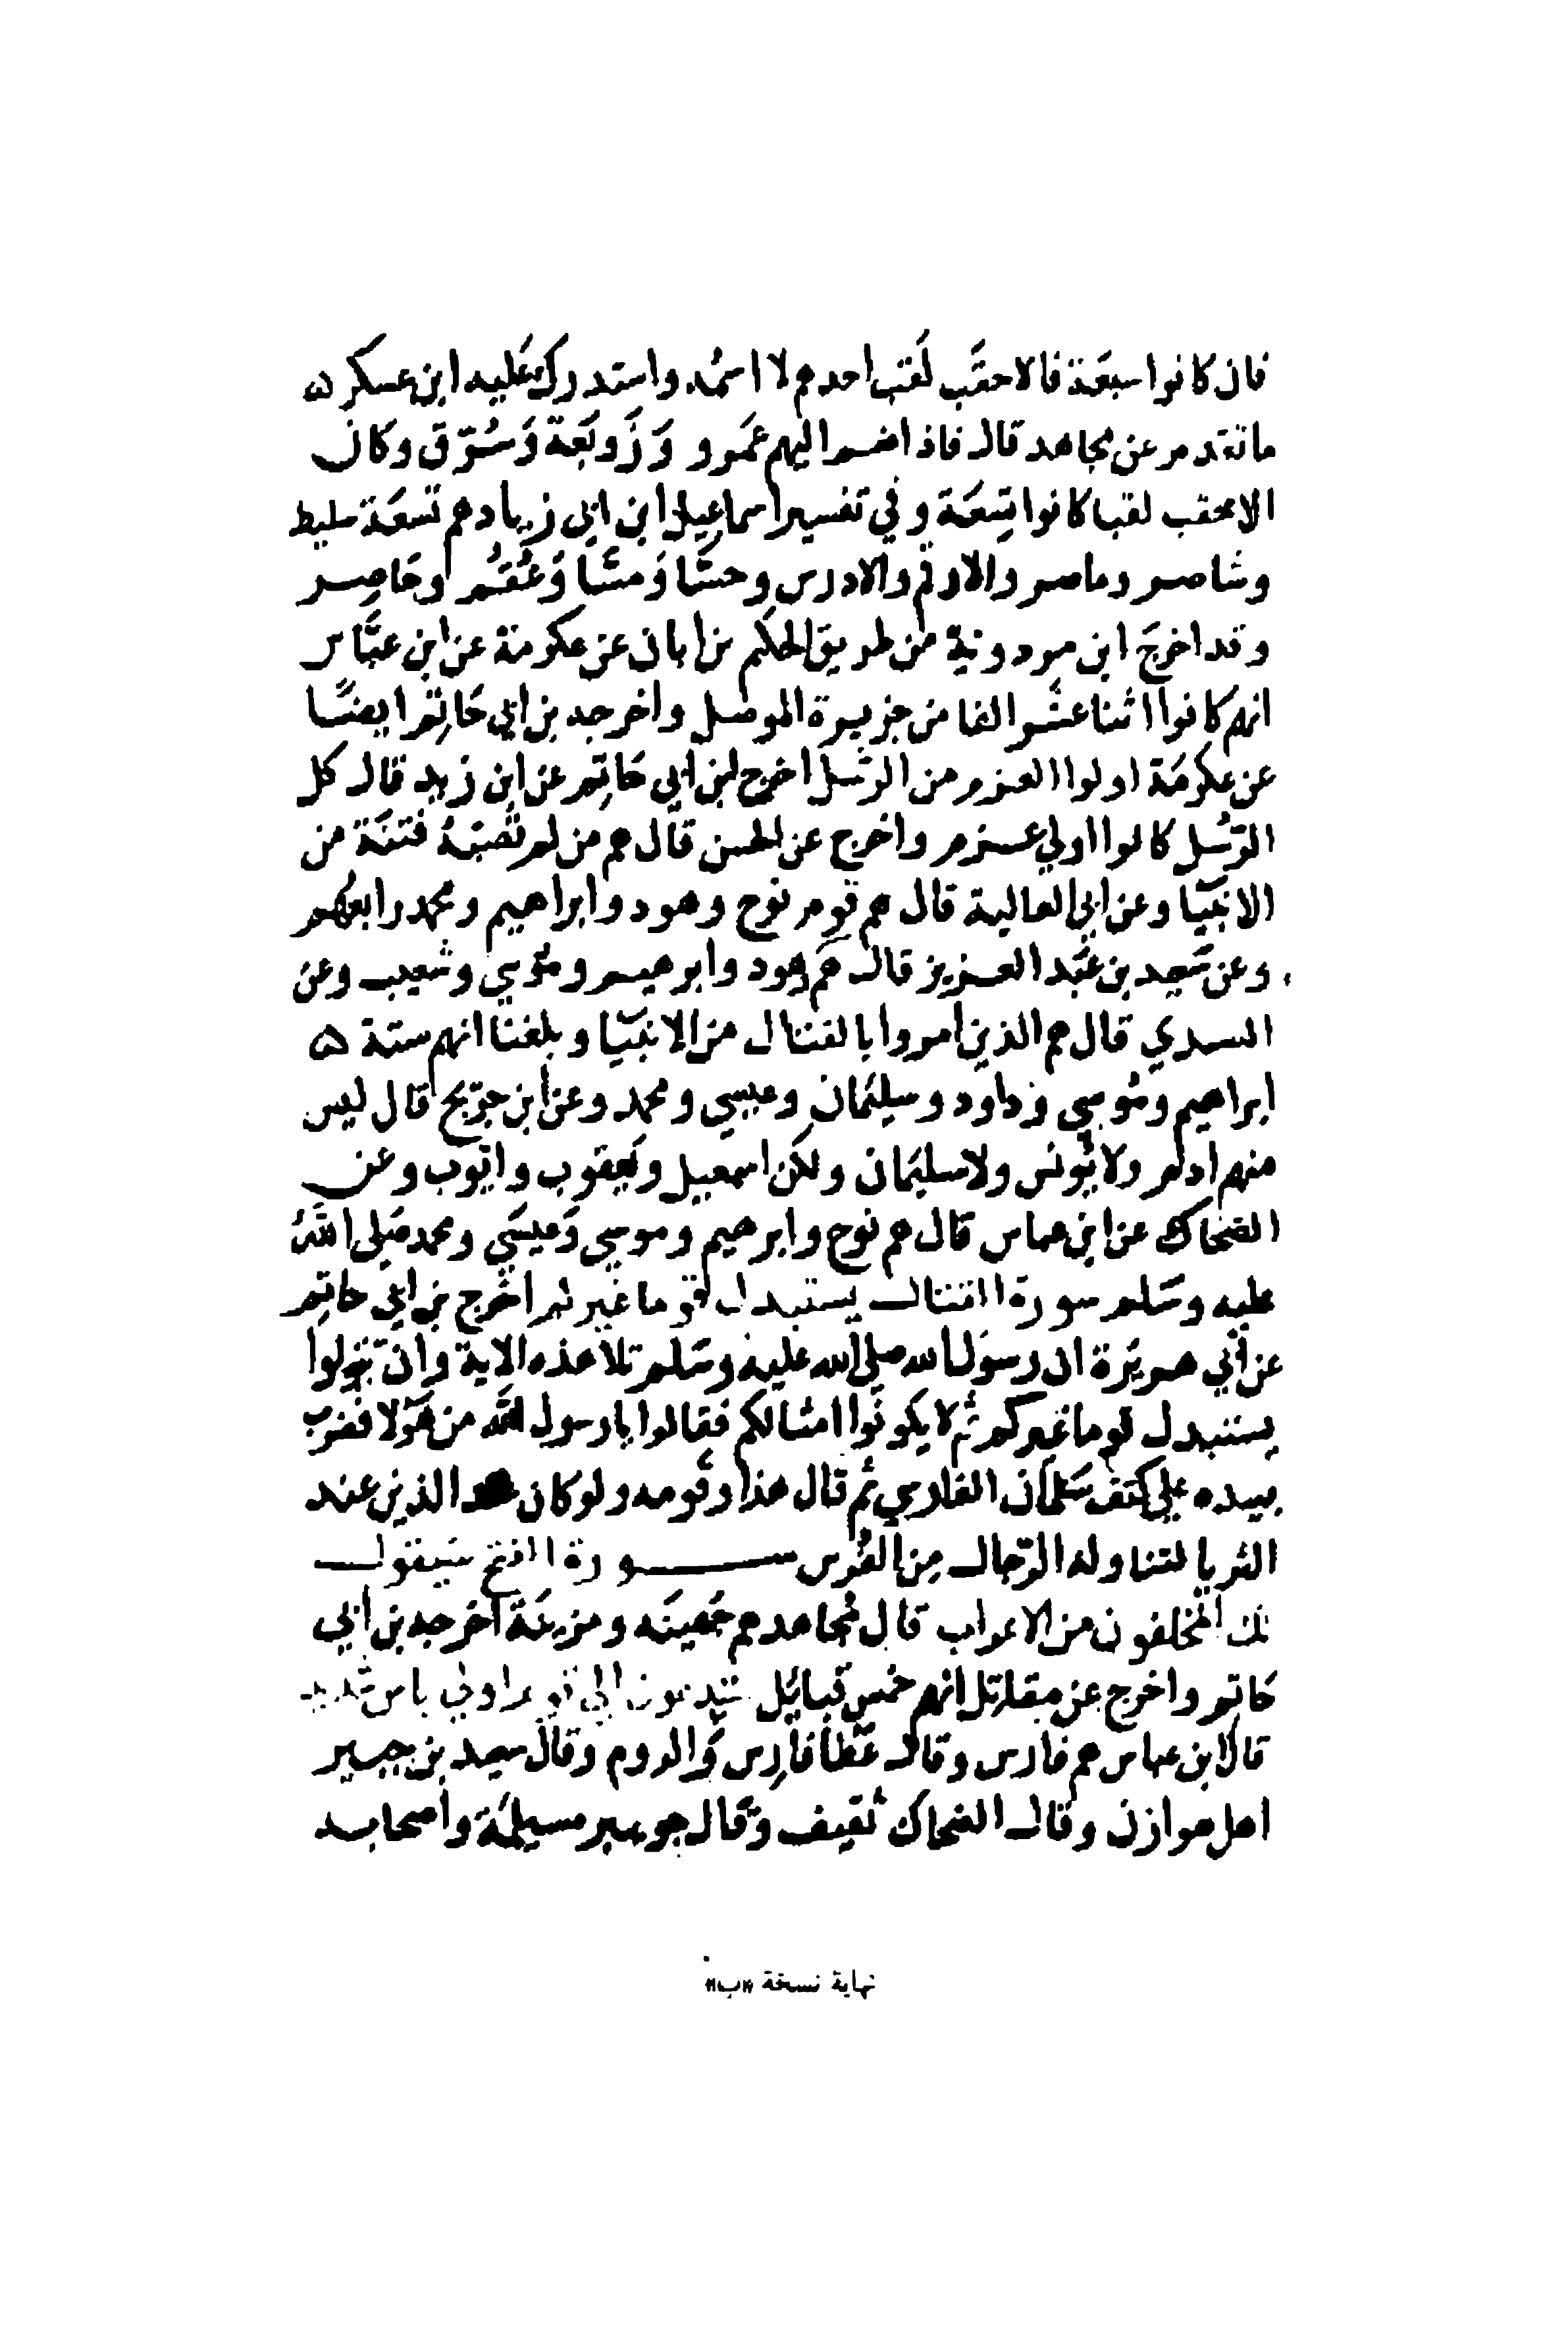 فان كانوا سبعة فالاحقب لقب احدهم لا اسمه واستدرك عليه ابن عسكر
ما تقدم عن مجاهد قال فاذا ضم اليهم عمرو وَزَوبَعة وَسُرّق وكان
الاحقب لقبا كانوا تسعة وفي تفسير اسماعيل ابن ابي زياد هم تسعة سليط
وشاصر وماصر والارقم والادرس وحسّا وَمسّا وَعُقيم وحاصر
وقد اخرج ابن مردوية من طريق الحكم بن ابان عن عكرمة عن ابن عبّاس
انهم كانوا اثنا عشر الفا من جزيرة الموصل واخرجه بن ابي حَاتِم ايضًا
عن عكرمة اولوا العزم من الرسل اخرج ابن ابي حَاتِم عن ابن زيد قال كل
الرّسُل كانوا اولي عزم واخرج عن الحسن قال هم من لم تصبهُ فتنة من
الانبيا وعن ابي العالية قال هم قوم نوح وهود وابراهيم ومحمد رابعهم
وعن سَعيد بن عَبد العزيز قال هُم هود وابرهيم ومُوسي وشعيب وعن
السدي قال هم الذين امروا بالقتال من الانبيا وبلغنا انهم ستة
ابراهيم ومُوسي وداود وسليمان وعيسي ومحمد وعن ابن جريج قال ليس
منهم ادم ولا يُونس ولا سليمان ولكن اسمعيل ويعقوب وايّوب وعن
الضحاك عن ابن عباس قال هم نوح وابرهيم وموسي وَعيسَي ومحمد صَلى اللهُ
عليه وسَلم سورة القتال يستبدل قوما غيركم اخرج بن ابي حاتِم
عن أبي هريرة ان رسوَل الله صلى الله عليه وسَلم تلا هذه الاية وان تتولوا
يستبدل قوما غيركم ثم لا يكونوا امثالكم فقالوا يا رسول الله من هَولا فضرب
بيده علي كتف سَلمان الفارسي ثم قال هذا وقومه ولو كان الذين عند
الثريا لتناوله الرّجال مِن الفُرس سورة الفتح سَيقول
لك المخلفون من الاعراب قال مُجاهد هم جُهينَه ومزينَة اخرجه بن ابي
حَاتِم واخرج عن مقاتل انهم خمس قبايَل ستدعون الي قوم اولي باس شديد
قال ابن عباس هم فارس وقال عَطا فارِس وَالروم وَقال سعيد بن جبير
اهل هوازن وقال الضحاك ثقيف وَقال جويبر مسيلمَة واصحابه
نهاية نسخة «ب»